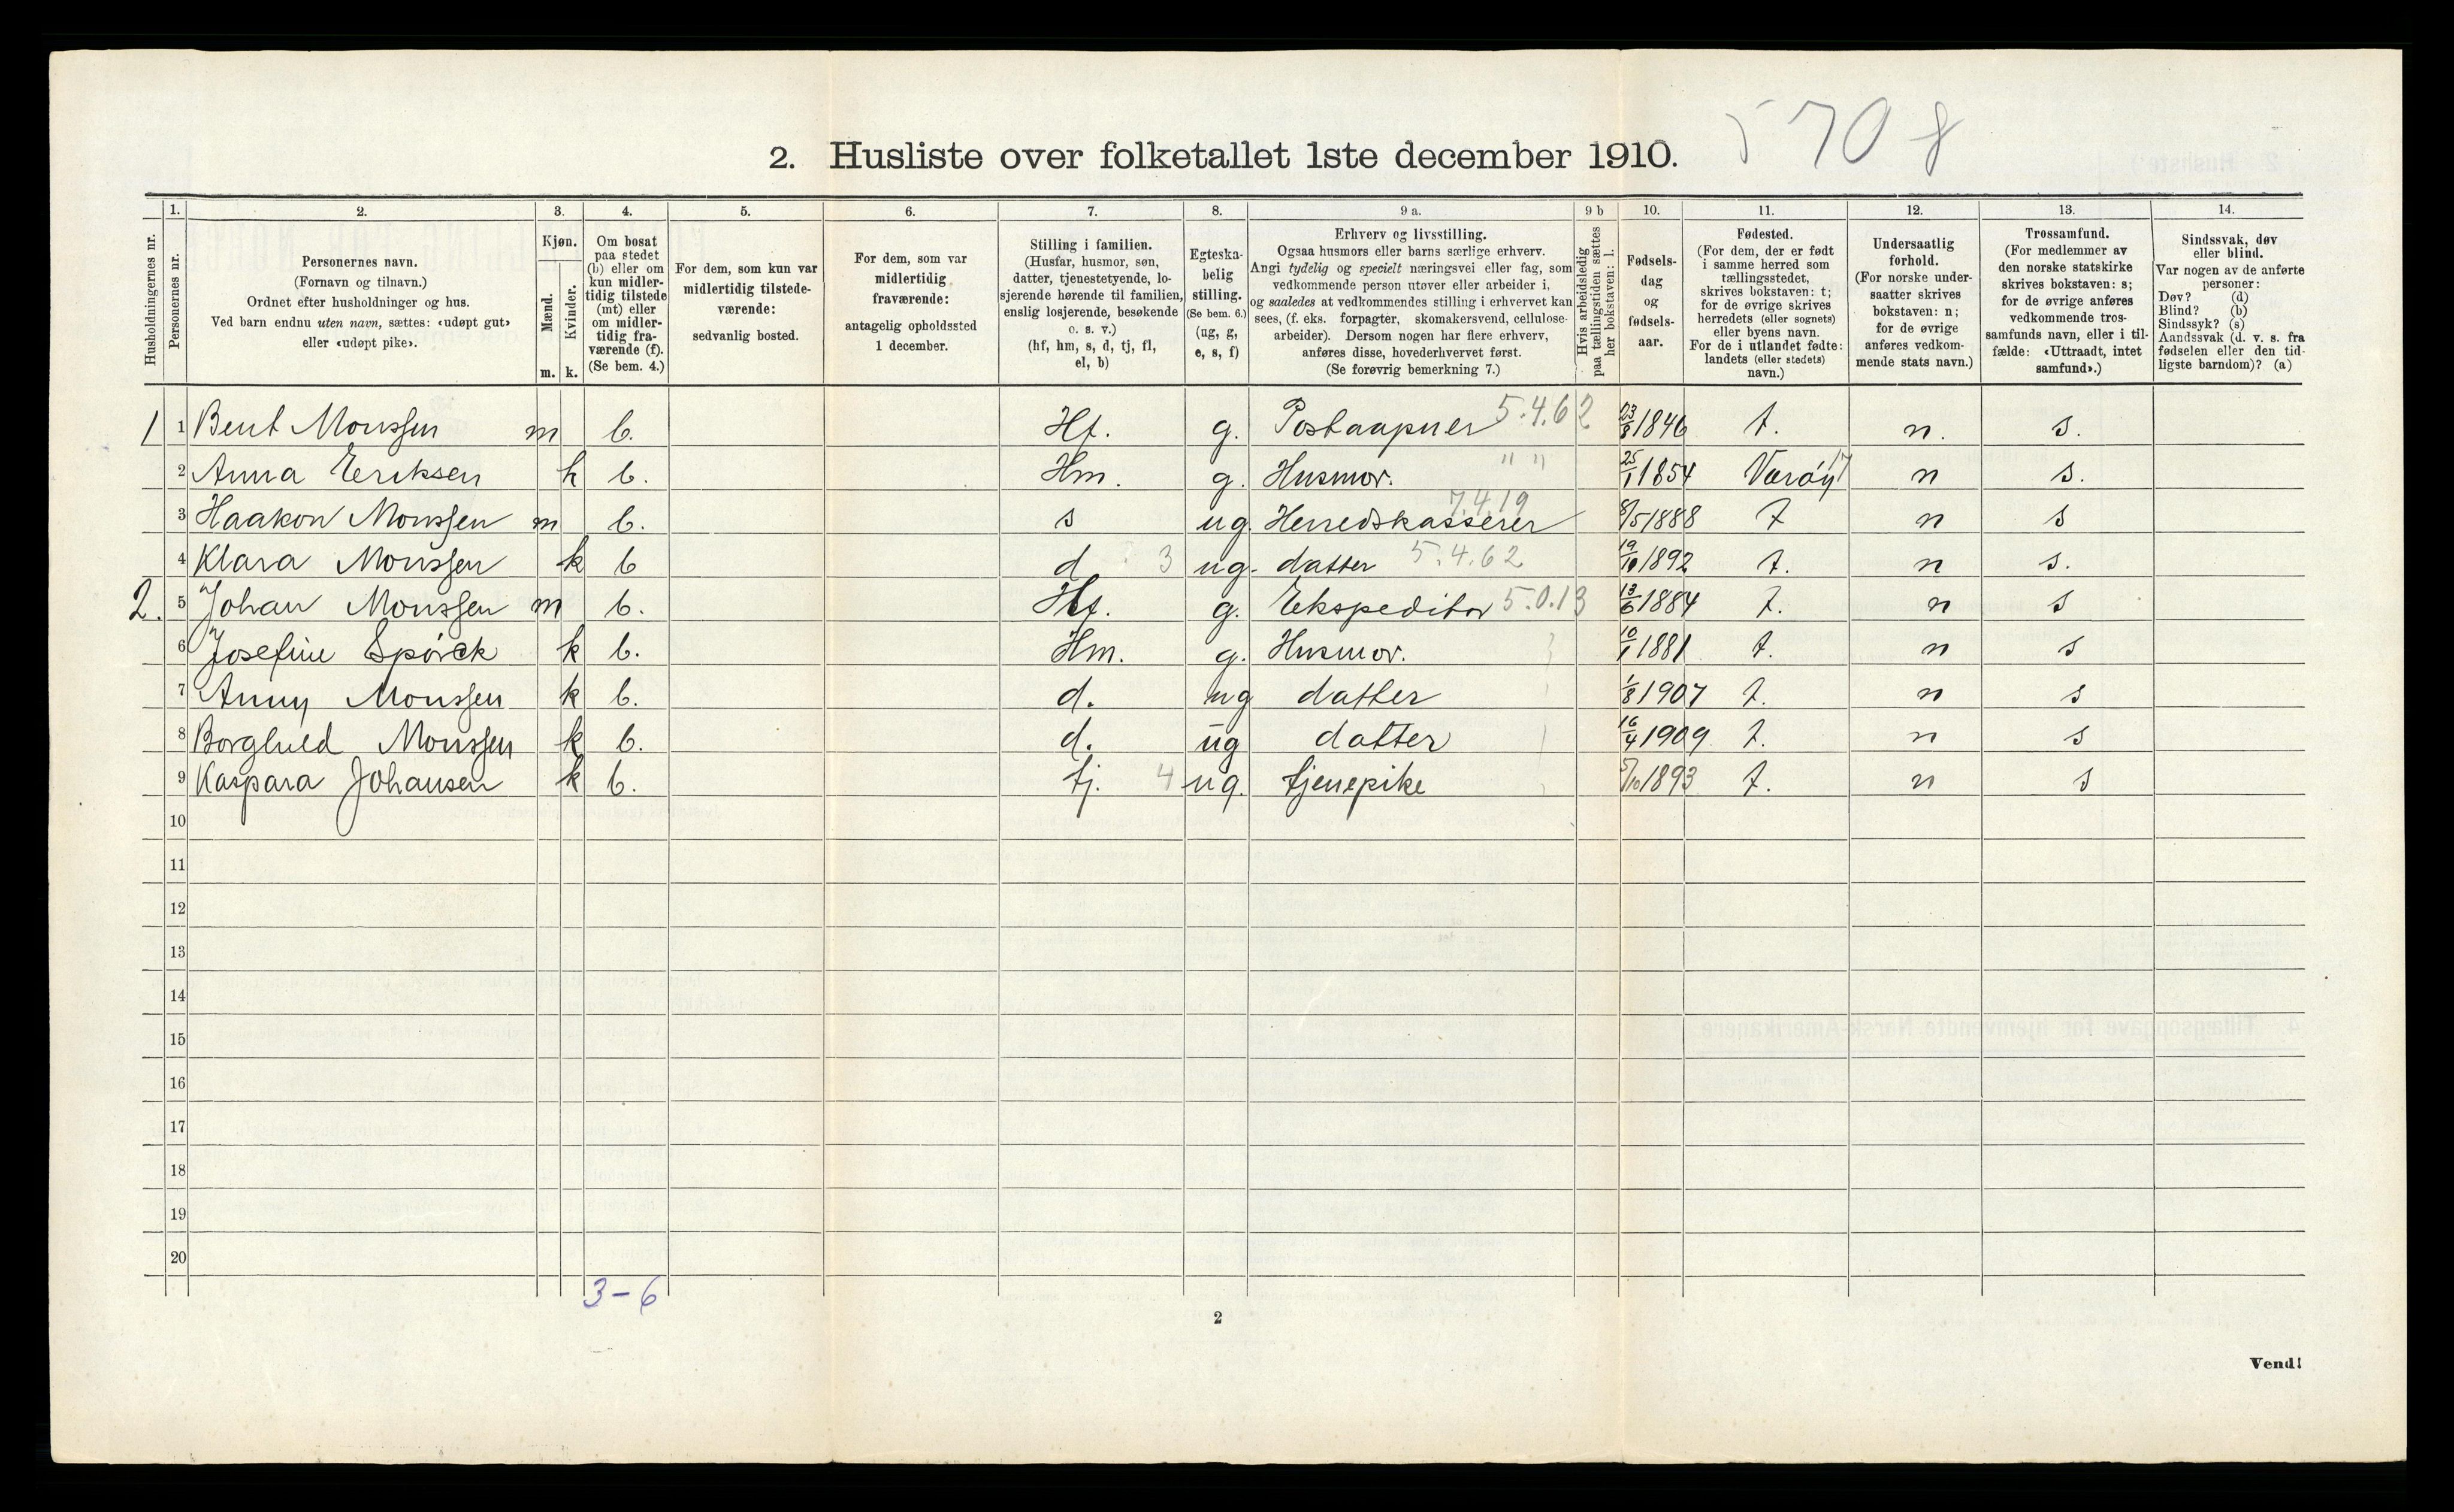 5708
2. Husliste over folketallet 1ste december 1910.
Husholdningernes nr.
1. Personernes nr.
2. Personernes navn. (Fornavn og tilnavn.) Ordnet efter husholdninger og hus. Ved barn endnu uten navn, sættes: «udøpt gut» eller «udøpt pike».
3. Kjøn. Mænd. Kvinder. m. k.
4. Om bosat paa stedet (b) eller om kun midlertidig tilstede (mt) eller om midlertidig fraværende (f). (Se bem. 4.)
5. For dem, som kun var midlertidig tilstedeværende: sedvanlig bosted.
6. For dem, som var midlertidig fraværende: antagelig opholdssted 1 december.
7. Stilling i familien. (Husfar, husmor, søn, datter, tjenestetyende, losjerende hørende til familien, enslig losjerende, besøkende o. s. v.) (hf, hm, s, d, tj, fl, el, b)
8. Egteskabelig stilling. (Se bem. 6.) (ug, g, e, s, f)
9 a. Erhverv og livsstilling. Ogsaa husmors eller barns særlige erhverv. Angi tydelig og specielt næringsvei eller fag, som vedkommende person utøver eller arbeider i, og saaledes at vedkommendes stilling i erhvervet kan sees, (f. eks. forpagter, skomakersvend, cellulosearbeider). Dersom nogen har flere erhverv, anføres disse, hovederhvervet først. (Se forøvrig bemerkning 7.)
9 b Hvis arbeidsledig paa tællingstiden sættes her bokstaven: l.
10. Fødselsdag og fødselsaar.
11. Fødested. (For dem, der er født i samme herred som tællingsstedet, skrives bokstaven: t; for de øvrige skrives herredets (eller sognets) eller byens navn. For de i utlandet fødte: landets (eller stedets) navn.)
12. Undersaatlig forhold. (For norske undersaatter skrives bokstaven: n; for de øvrige anføres vedkommende stats navn.)
13. Trossamfund. (For medlemmer av den norske statskirke skrives bokstaven: s; for de øvrige anføres vedkommende trossamfunds navn, eller i tilfælde: «Uttraadt, intet samfund».)
14. Sindssvak, døv eller blind. Var nogen av de anførte personer: Døv? (d) Blind? (b) Sindssyk? (s) Aandssvak (d. v. s. fra fødselen eller den tidligste barndom)? (a)
1 1 Bent Monssen m b. Hf. g. Postaapner 5.4.62 23/8 1846 t. n. s.
2 Anna Eriksen k b. Hm. g. Husmor. " " 25/1 1854 Værøy 17 n s.
3 Haakon Monssen m b. s ug. Herredskasserer 7.4.19 8/5 1888 t n s
4 Klara Monssen k b d 3 ug. datter 5.4.62 19/10 1892 t. n s.
2. 5 Johan Monssen m b. Hf. g. Ekspeditør 5.0.13 13/6 1884 t. n s
6 Josefine Spörck k b. Hm. g. Husmor. 10/1 1881 t. n s
7 Anny Monssen k b. d. ug datter 1/8 1907 t. n s
8 Borghild Monssen k b. d. ug datter 16/4 1909 t. n s
9 Kaspara Johansen k b. tj. 4 ug. tjenepike 5/10 1893 t. n s
10
11
12
13
14
15
16
17
18
19
20
3-6
2
Vend!